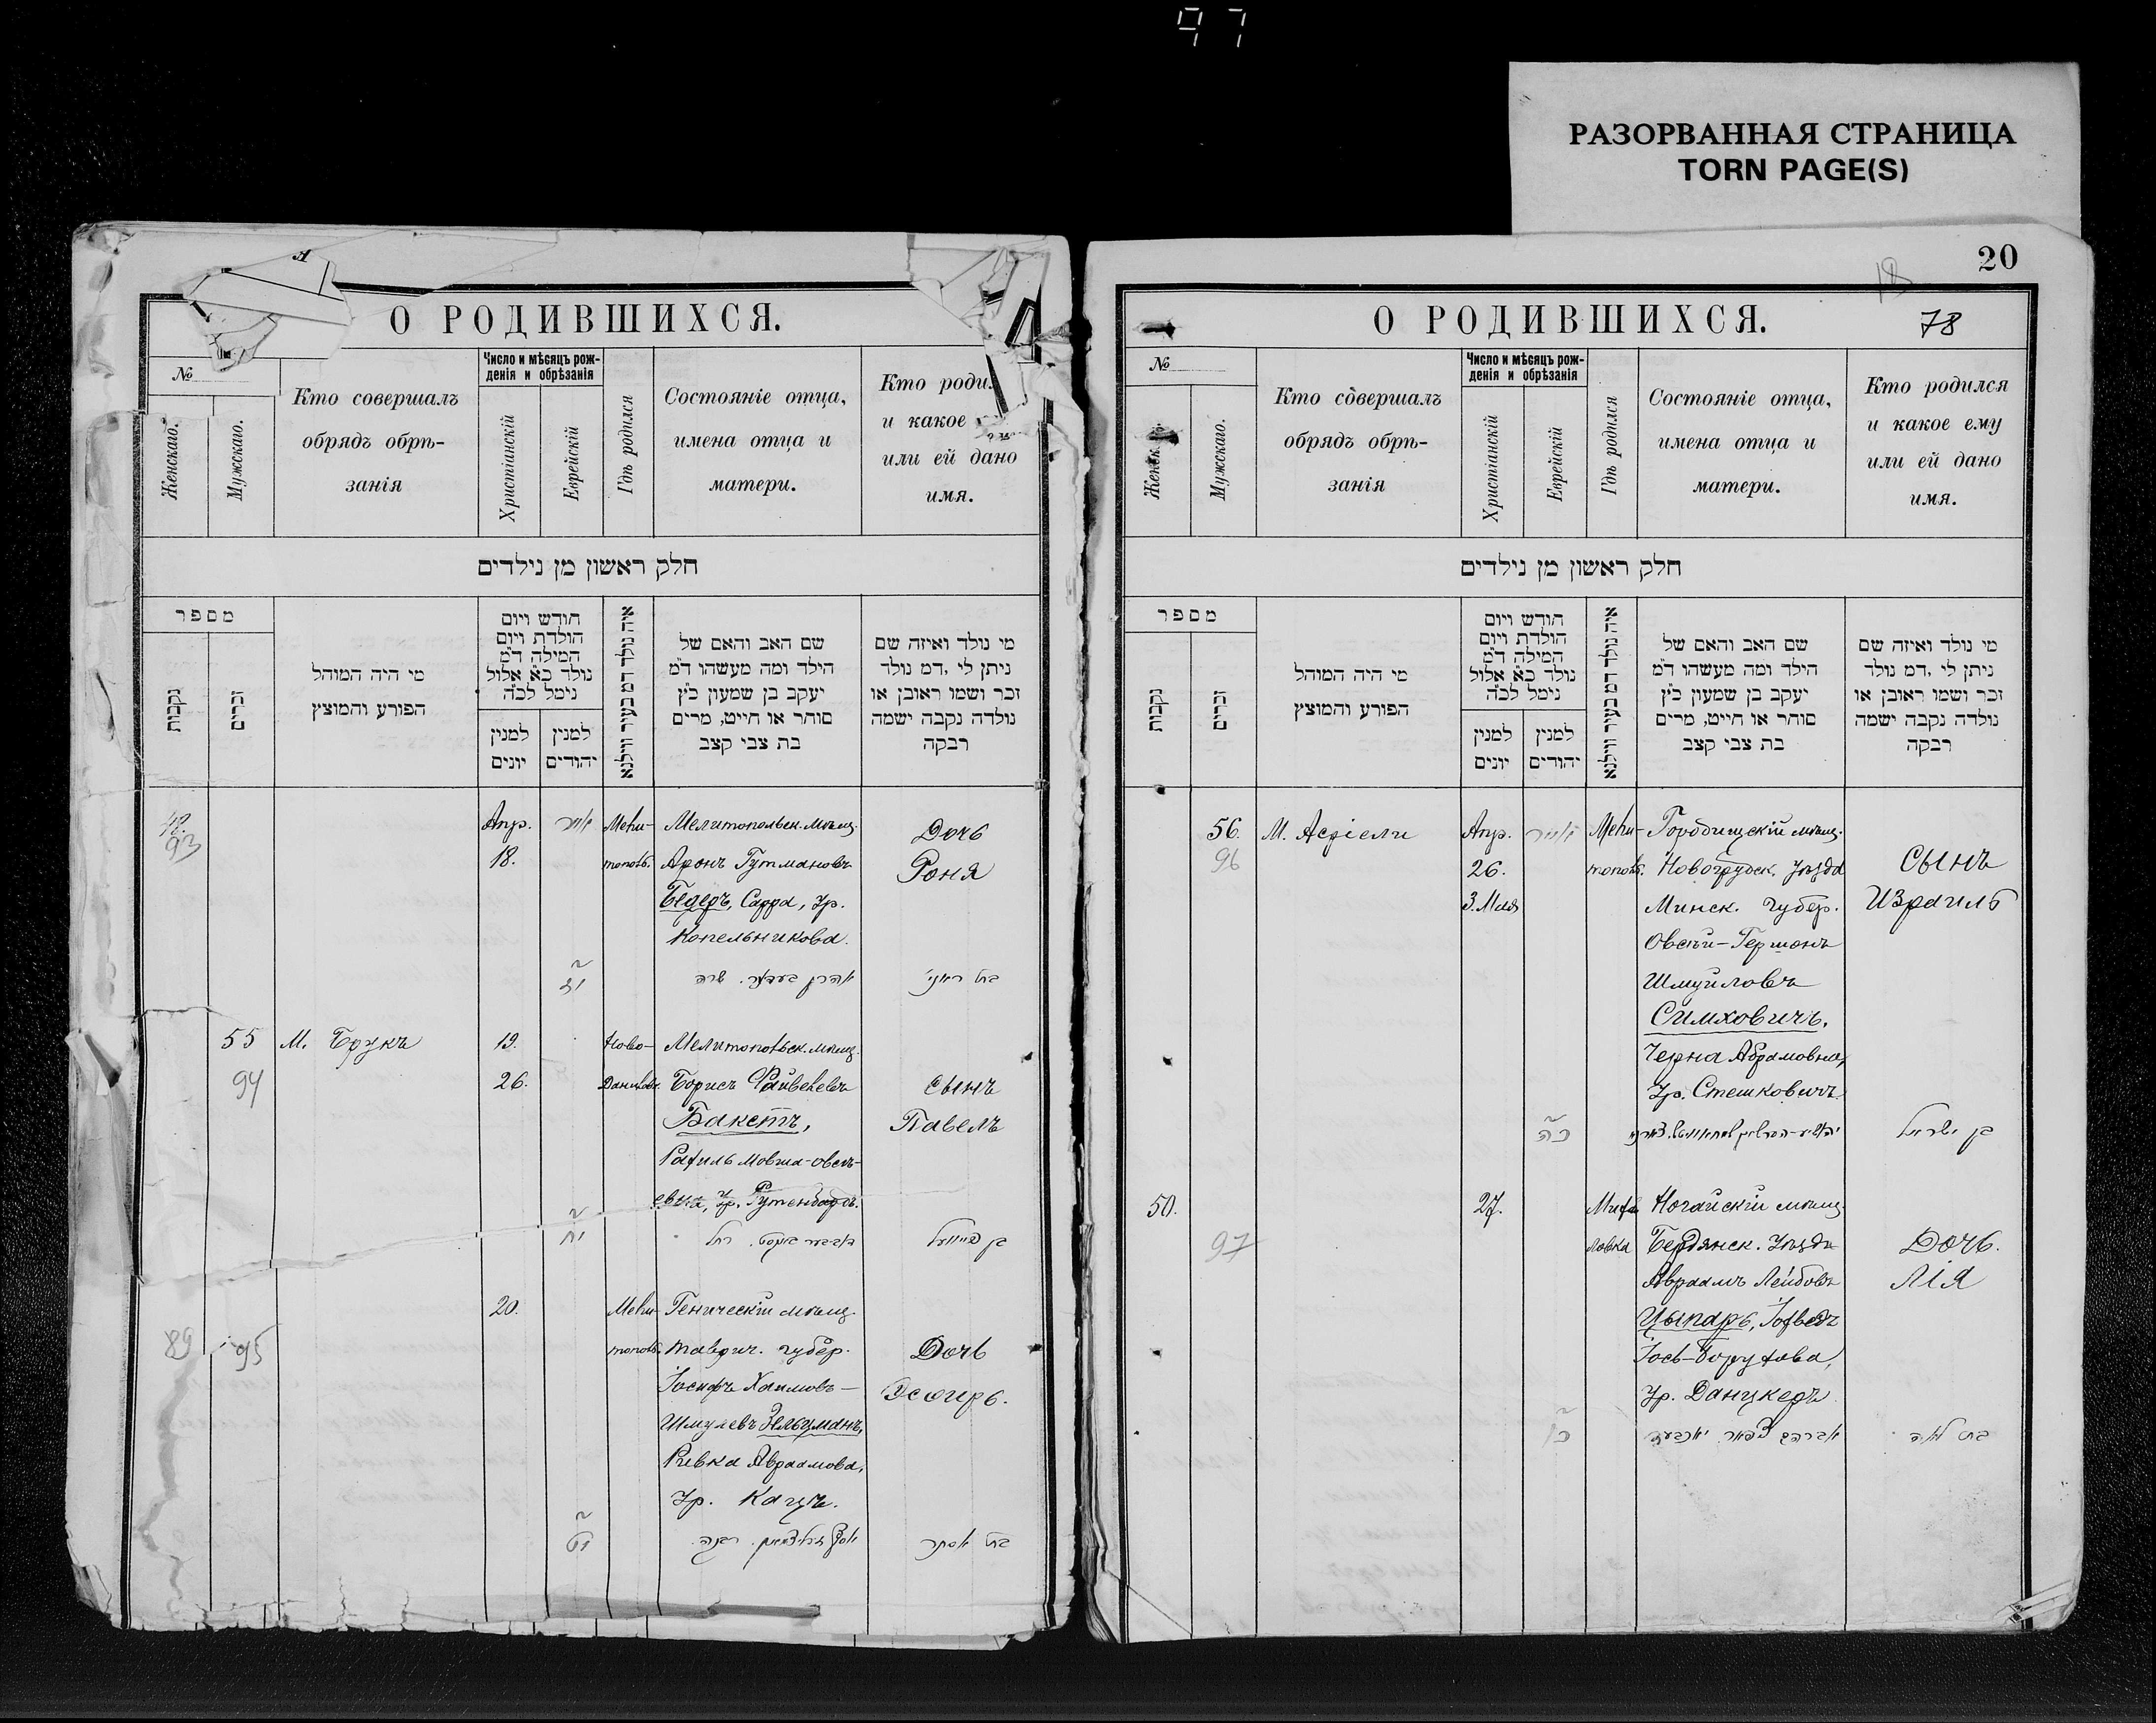 97
РАЗОРВАННАЯ СТРАНИЦА
TORN PAGE(S)
О РОДИВШИХСЯ.
№
Женскаго.
Мужскаго.
Кто совершалъ
обрядъ обрѣ-
занія
Число и мѣсяцъ рож-
денія и обрѣзанія
Христіанскій
Еврейскій
Гдѣ родился
Состояніе отца,
имена отца и
матери.
Кто роди
и какое
или ей дано
имя.
חלק ראשון מן נילדים
מספר
נקבות
זכרים
מי היה המוהל
הפורע והמוצץ
חודש ויום
הולדת ויום
המילה ד״מ
נולד כ״א אלול
נימל לכ״ה
למנין
יונים
למנין
יהודים
איה נולד דמ בעיר ווילנא
שם האב והאם של
הילד ומה מעשהו ד״מ
יעקב בן שמעון כ״ץ
סוחר או חייט, מרים
בת צבי קצב
מי נולד ואיזה שם
ניתן לי, דמ נולד
זכר ושמו ראובן או
נולדה נקבה ישמה
רבקה
48.
93
Апр.
18.
אייר
יד
Мели-
тополь.
Мелитопольск. мѣщ.
Аронъ Гутмановъ
Бедеръ, Сарра, Ур.
Копельникова.
אהרן בעדער. שרה
Дочь
Роня
בת ראניי
55
94
М. Брукъ
19.
26.
יח
Ново-
Даниловк.
Мелитопольск. мѣщ.
Борисъ Файвелевъ
Бакстъ,
Рахиль Мовша-Овсѣ-
евна, Ур. Гутенбаргъ.
Сынъ
Павелъ
בן פייוועל
95
89
20.
יט
Мели-
тополь.
Геническій мѣщ.
Таврич. губер.
Іосифъ Хаимовъ-
Шмулевъ Зельцманъ,
Ривка Авраамова,
Ур. Кацъ.
Дочь
Эсѳирь.
בת אסתר
20
18
78
О РОДИВШИХСЯ.
№
Женск
Мужскаго.
Кто совершалъ
обрядъ обрѣ-
занія
Число и мѣсяцъ рож-
денія и обрѣзанія
Христіанскій
Еврейскій
Гдѣ родился
Состояніе отца,
имена отца и
матери.
Кто родился
и какое ему
или ей дано
имя.
חלק ראשון מן נילדים
מספר
נקבות
זכרים
מי היה המוהל
הפורע והמוצץ
חודש ויום
הולדת ויום
המילה ד״מ
נולד כ״א אלול
נימל לכ״ה
למנין
יונים
למנין
יהודים
איה נולד דמ בעיר ווילנא
שם האב והאם של
הילד ומה מעשהו ד״מ
יעקב בן שמעון כ״ץ
סוחר או חייט, מרים
בת צבי קצב
מי נולד ואיזה שם
ניתן לי, דמ נולד
זכר ושמו ראובן או
נולדה נקבה ישמה
רבקה
56.
96
М. Асріели
Апр.
26.
3. Мая
אייר
כה
Мели-
тополь.
Городищскій мѣщ.
Новогрудск. Уѣзда
Минск. губер.
Овсѣй-Гершонъ
Шмуйловъ
Симховичъ,
Черна Абрамовна,
Ур. Стешковичъ.
Сынъ
Израиль
בן ישראל
50.
97
27.
Миха
ловка
Ногайскій мѣщ.
Бердянск. Уѣзда
Авраамъ Лейбовъ
Цыпаръ, Іохведъ
Іось-Борухова,
Ур. Данцкеръ
Дочь.
Лія
בת לאה